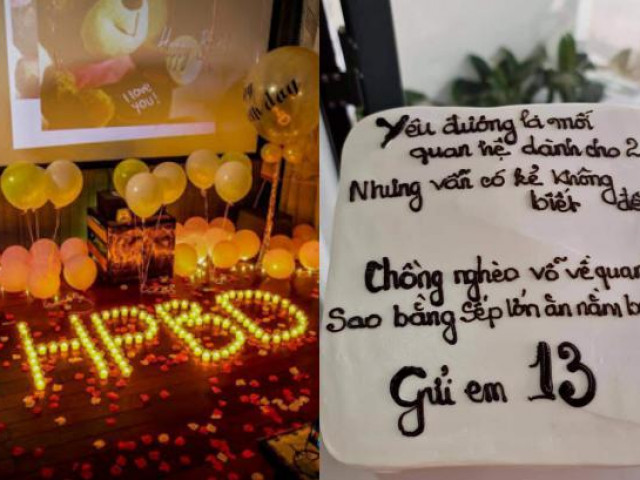 I love
you!
day
HPBD
Yêu đương là mối
quan hệ dành cho 2
Nhưng vẫn có kẻ không
biết đế
Chồng nghèo vỗ về quan
Sao bằng sếp lớn ăn nằm b
Gửi em 13